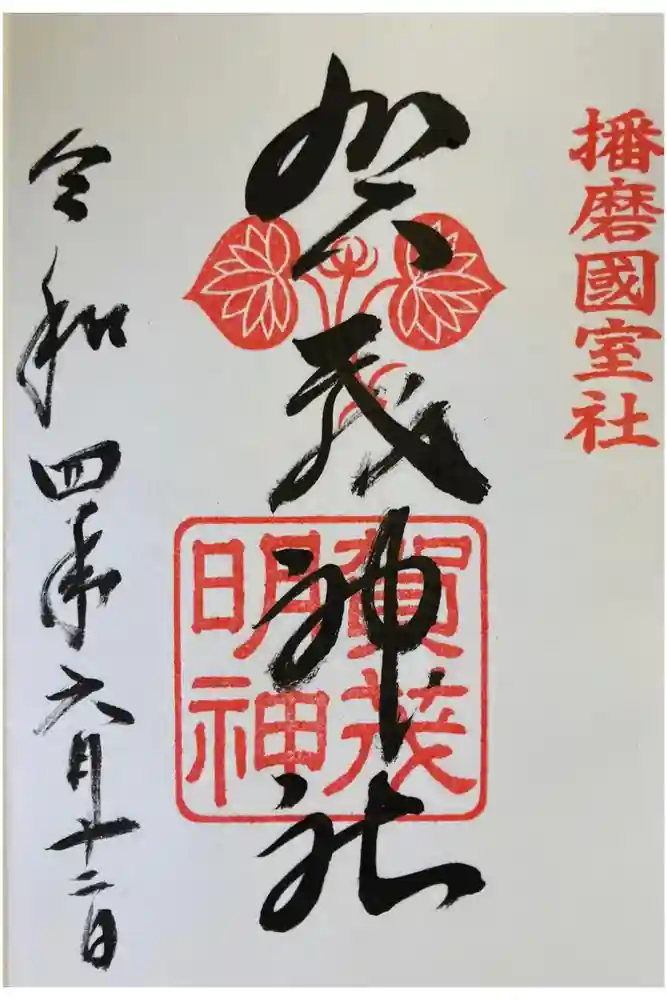 播磨國室社
賀茂神社
賀茂
明神
令和四年六月十二日